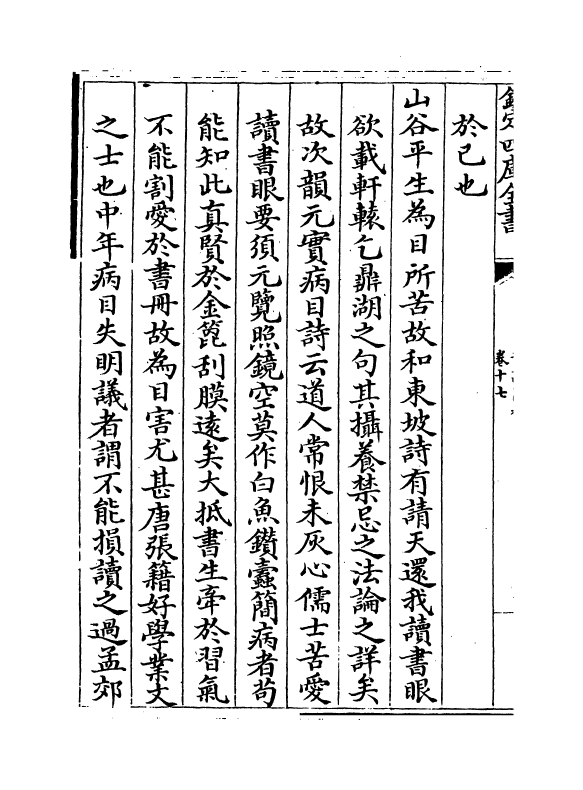 欽定四庫全書
卷十七
於己也
山谷平生為目所苦故和東坡詩有請天還我讀書眼
欲載軒轅乞鼎湖之句其攝養禁忌之法論之詳矣
故次韻元實病目詩云道人常恨未灰心儒士苦愛
讀書眼要須元覽照鏡空莫作白魚鑽蠹簡病者茍
能知此真賢於金篦刮膜逺矣大抵書生牽於習氣
不能割愛於書冊故為目害尤甚唐張籍好學業文
之士也中年病目失明議者謂不能損讀之過孟郊